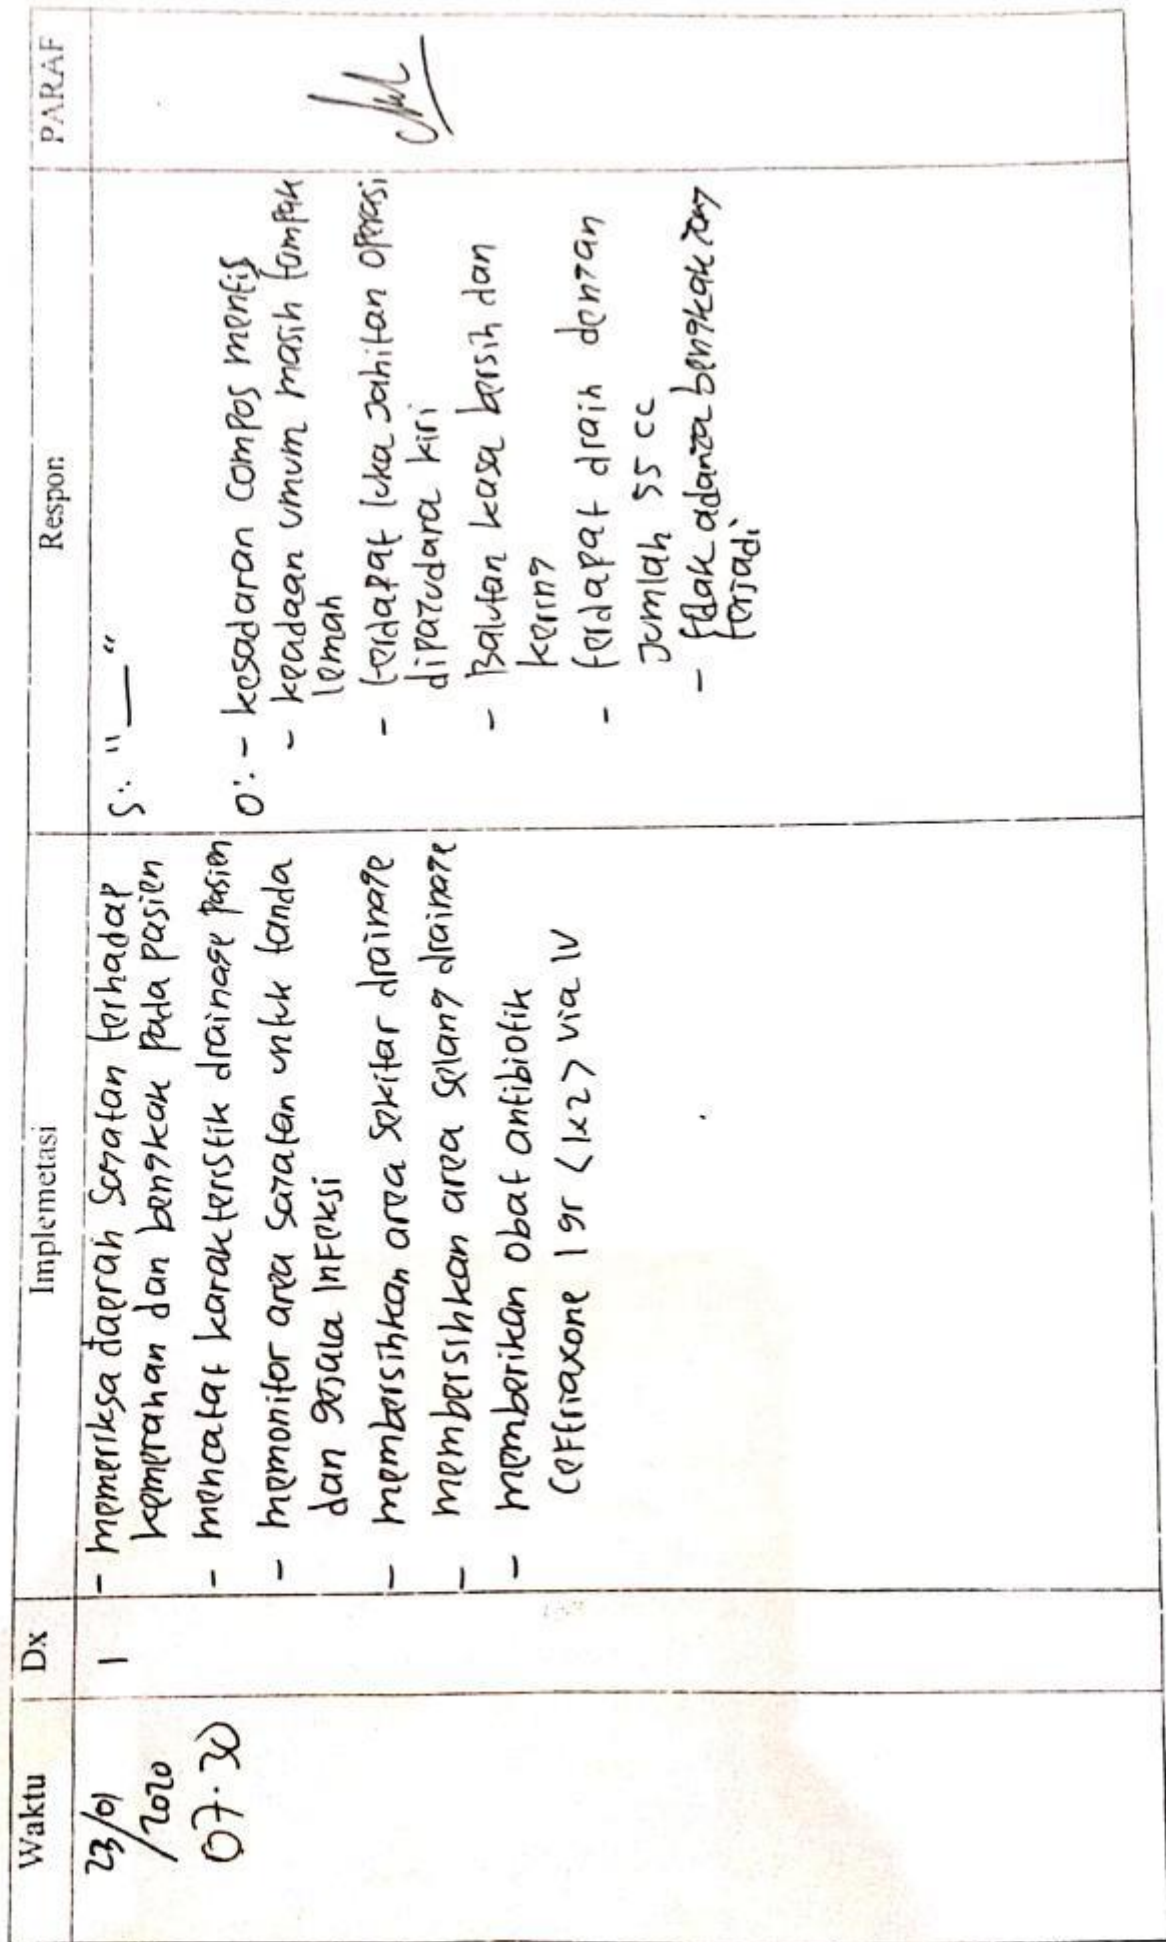 Waktu Dx Implemetasi Respon PARAF
23/01
/2020
07.30
1
- memeriksa daerah sayatan terhadap
kemerahan dan bengkak pada pasien
- mencatat karakteristik drainase pasien
- memonitor area sayatan untuk tanda
dan gejala infeksi
- membersihkan area sekitar drainage
- membersihkan area selang drainage
- memberikan obat antibiotik
Ceftriaxone 1 gr (1x2) via IV
S: "—"
O: - kesadaran compos mentis
- keadaan umum masih tampak
lemah
- terdapat luka jahitan operasi
dipayudara kiri
- Balutan kasa bersih dan
kering
- terdapat drain dengan
Jumlah 55 cc
- tidak adanya bengkak yang
terjadi